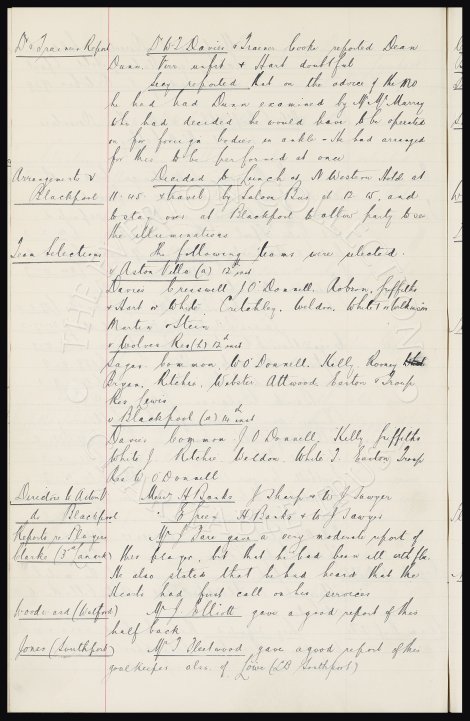 Dr & Trainers Report
Dr W E Davies & Trainer Cooke reported Dean
Dunn Kerr unfit & Hart doubtful
Secy reported that on the advice of the MO
he had had Dunn examined by Mr McMurray
who had decided he would have to be operated
on for foreign bodies in ankle. He had arranged
for this to be performed at once
Arrangements v
Blackpool
Decided to lunch at N Western Hotel at
11.45 & travel by Saloon Bus at 12.15, and
to stay over at Blackpool to allow party to see
the illuminations
Team Selections
The following teams were selected.
v Aston Villa (a) 12th inst
Davies Cresswell J O'Donnell, Robson, Griffiths
& Hart or White, Critchley, Weldon, White or Wilkinson
Martin & Stein
v Wolves Res (h) 12th inst
Sagar Common, W O'Donnell, Kelly, Rooney
Bryan, Ritchie, Webster Attwood Easton & Troup
Res Lewis
v Blackpool (a) 14th inst
Davies Common J O Donnell, Kelly Griffiths
White J. Ritchie Weldon, White T. Easton Troup
Res W O Donnell
Directors to Attend
Messrs H Banks J Sharp & W J Sawyer
do Blackpool
" E Green H Banks & W J Sawyer
Reports re Players
Clarke (3rd Lanark)
Mr J Fare gave a very moderate report of
this player, but that he had been ill with flu.
He also states that he had heard that the
Leeds had first call on his services
Woodward (Watford)
Mr J. Elliott gave a good report of this
half back
Jones (Southport)
Mr T Fleetwood gave a good report of this
goalkeeper also of Lowe (LB Southport)